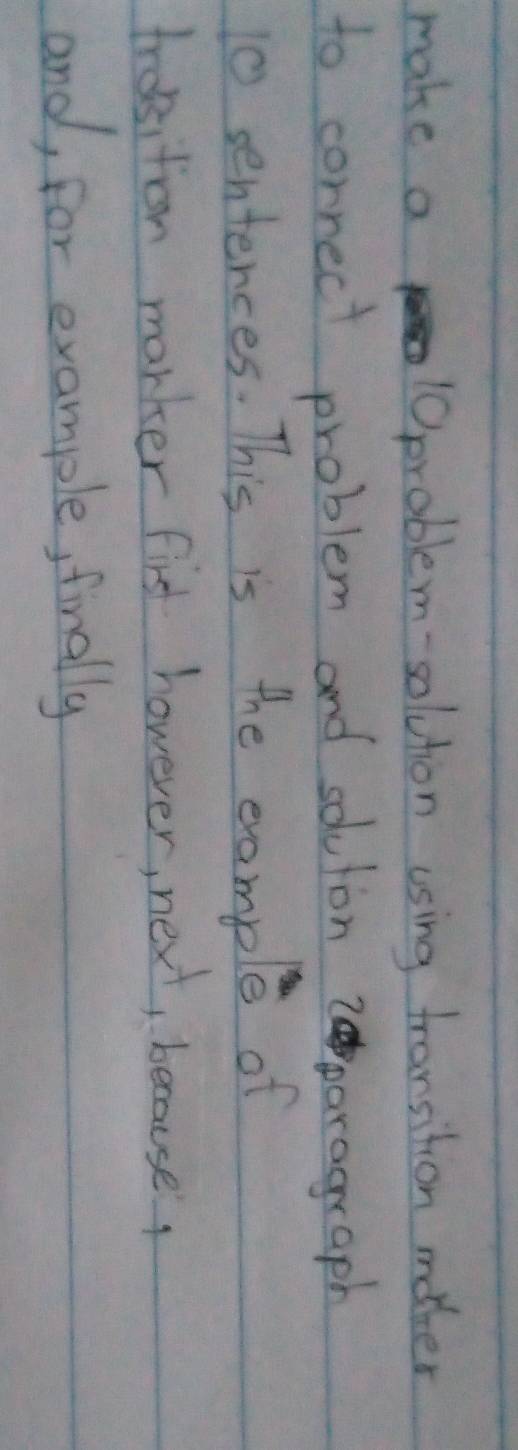 make a 10 problem-solution using transition marker
to connect problem and solution 2 paragraph
10 sentences. This is the example of
transition marker first however, next, because,
and, for example, finally